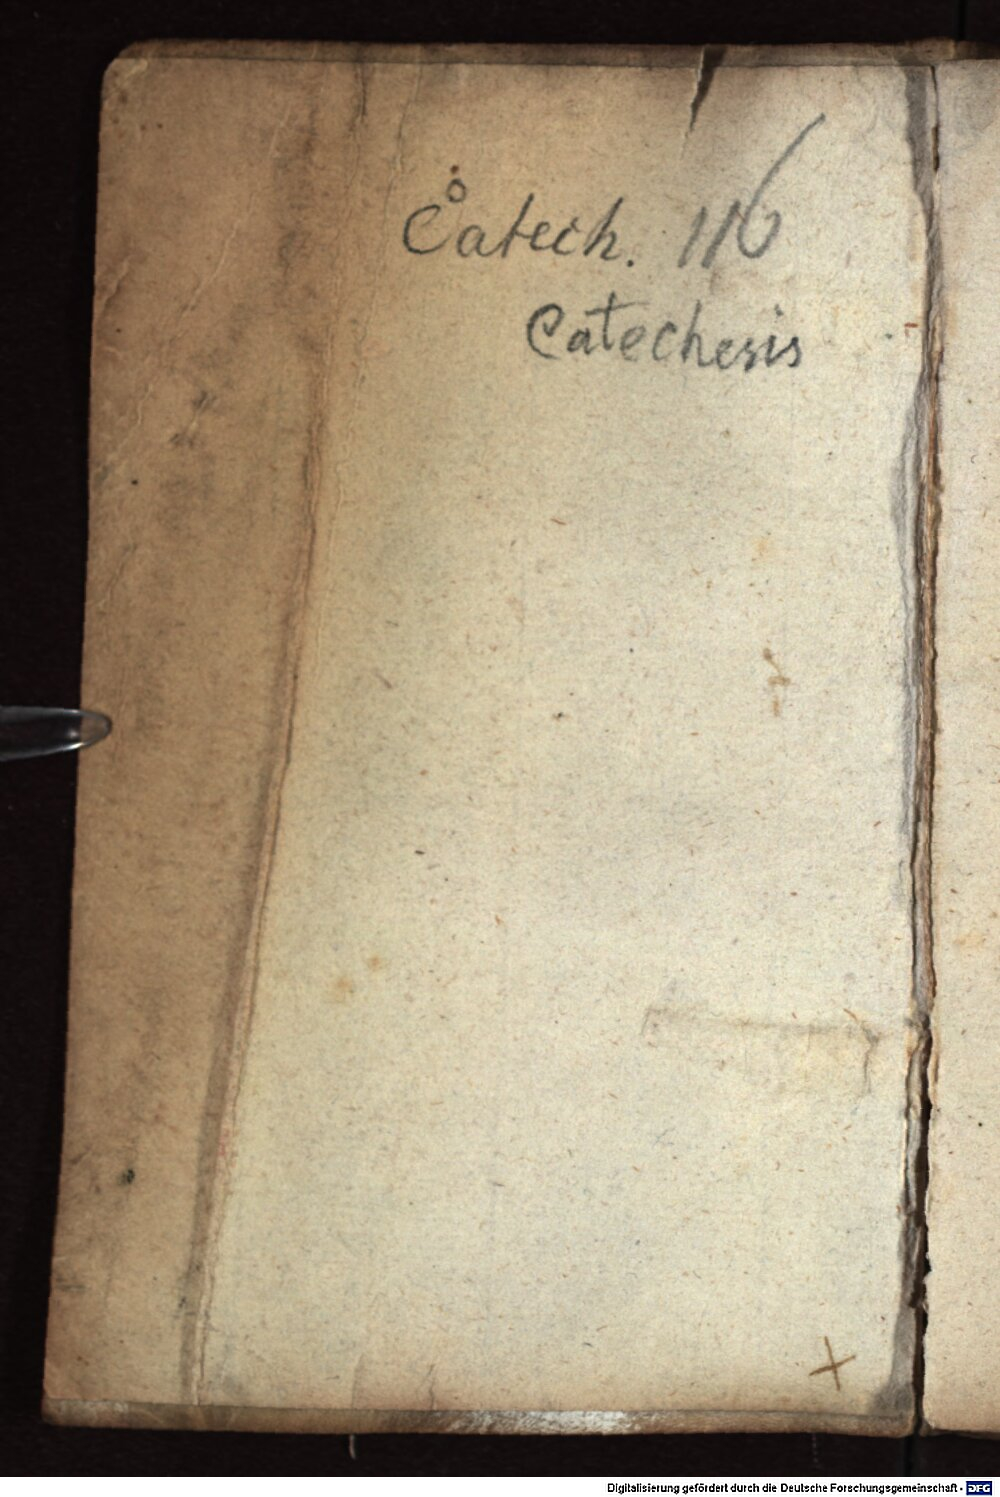 Catech. 116
Catechesis
+
Digitalisierung gefördert durch die Deutsche Forschungsgemeinschaft - DFG